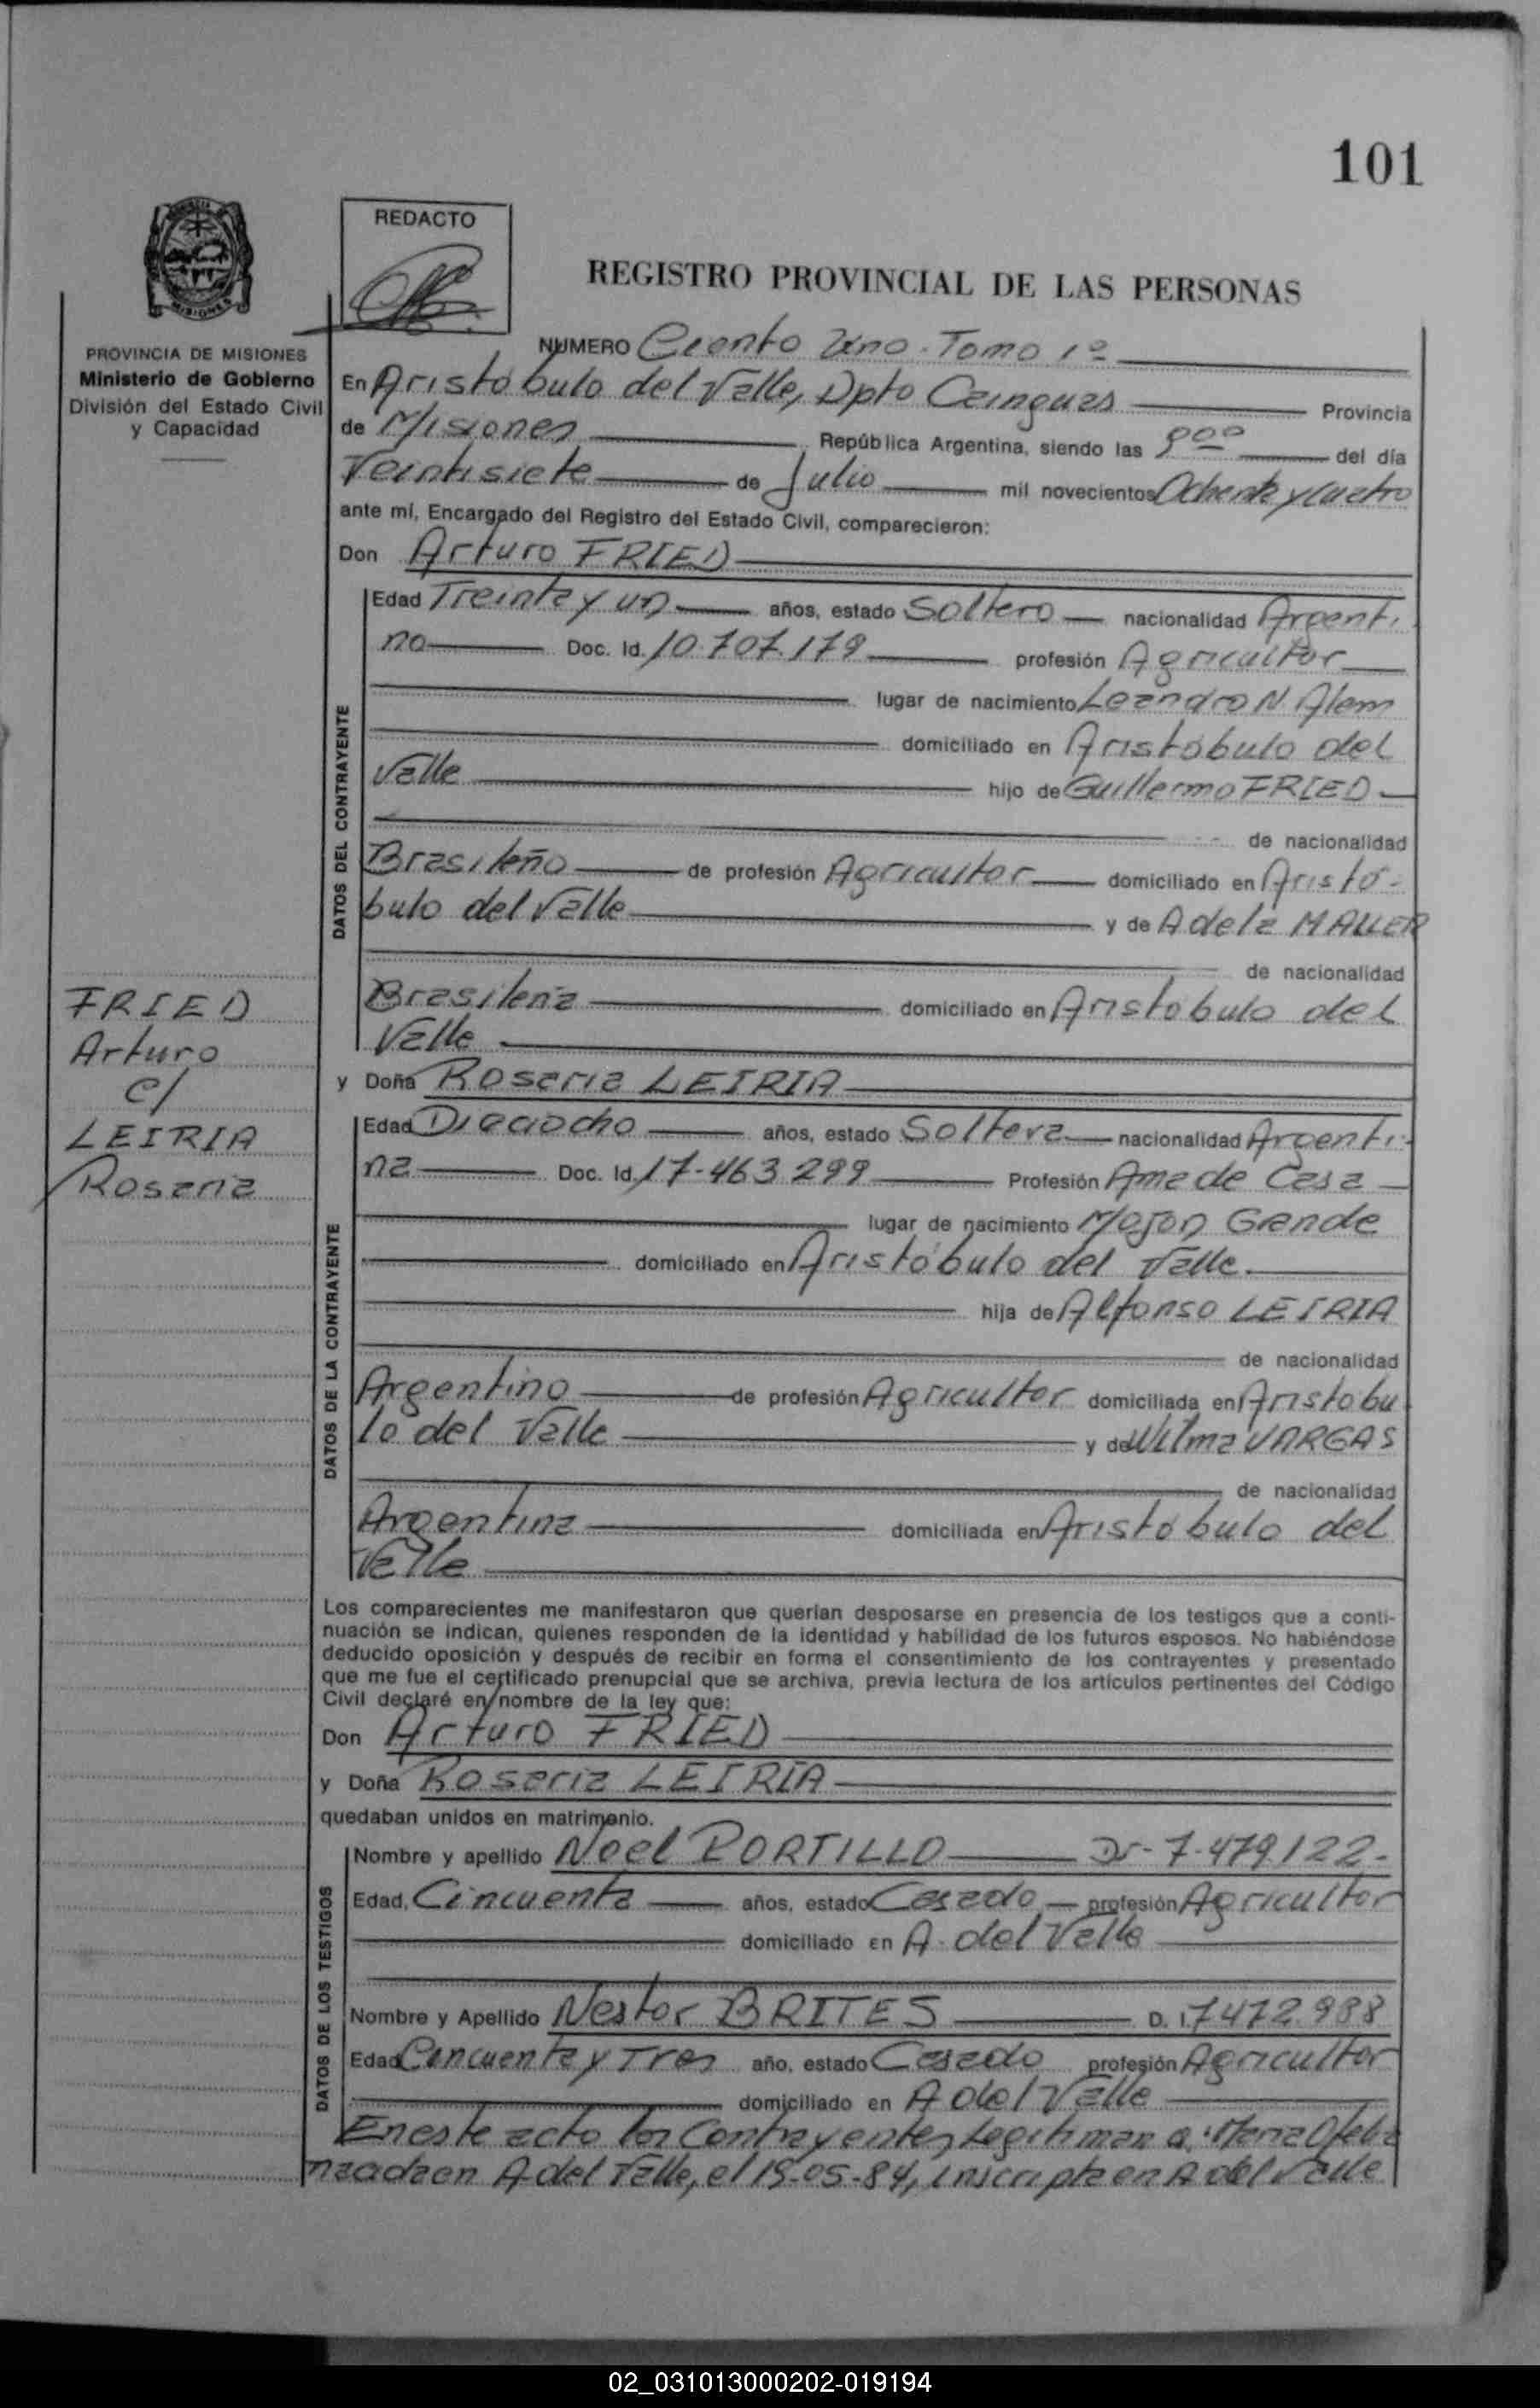 101
REDACTO
REGISTRO PROVINCIAL DE LAS PERSONAS
MISIONES
PROVINCIA DE MISIONES
Ministerio de Gobierno
División del Estado Civil
y Capacidad
FRIED
Arturo
c/
LEIRIA
Rosaria
NUMERO Ciento Uno. Tomo 1º
En Aristóbulo del Valle, Dpto Cainguas Provincia
de Misiones República Argentina, siendo las 900 del día
Veintisiete de Julio mil novecientos Ochenta y cuatro
ante mí, Encargado del Registro del Estado Civil, comparecieron:
Don Arturo FRIED
DATOS DEL CONTRAYENTE
Edad Treinta y un años, estado Soltero nacionalidad Argenti-
no Doc. Id. 10.707.179 profesión Agricultor
lugar de nacimiento Leandro N Alem
domiciliado en Aristóbulo del
Valle hijo de Guillermo FRIED
de nacionalidad
Brasileño de profesión Agricultor domiciliado en Aristó-
bulo del Valle y de Adela MALLER
de nacionalidad
Brasileña domiciliado en Aristobulo del
Valle
y Doña Rosaria LEIRIA
DATOS DE LA CONTRAYENTE
Edad Dieciocho años, estado Soltera nacionalidad Argenti-
na Doc. Id. 17-463.299 Profesión Ama de Casa
lugar de nacimiento Mojon Grande
domiciliado en Aristóbulo del Valle.
hija de Alfonso LEIRIA
de nacionalidad
Argentino de profesión Agricultor domiciliada en Aristobu
lo del Valle y de Wilma VARGAS
de nacionalidad
Argentina domiciliada en Aristóbulo del
Valle
Los comparecientes me manifestaron que querían desposarse en presencia de los testigos que a conti-
nuación se indican, quienes responden de la identidad y habilidad de los futuros esposos. No habiéndose
deducido oposición y después de recibir en forma el consentimiento de los contrayentes y presentado
que me fue el certificado prenupcial que se archiva, previa lectura de los artículos pertinentes del Código
Civil declaré en nombre de la ley que:
Don Arturo FRIED
y Doña Rosaria LEIRIA
quedaban unidos en matrimonio.
DATOS DE LOS TESTIGOS
Nombre y apellido Noel PORTILLO DI- 7.479.122-
Edad, Cincuenta años, estado Casado profesión Agricultor
domiciliado en A. del Valle
Nombre y Apellido Nestor BRITES D. I. 7472.988
Edad Cincuenta y Tres año, estado Casado profesión Agricultor
domiciliado en A del Valle
En este acto los Contrayentes Legitiman a: Maria
en A del Valle, el 19-05-84, inscripta en A del Valle
02_031013000202-019194